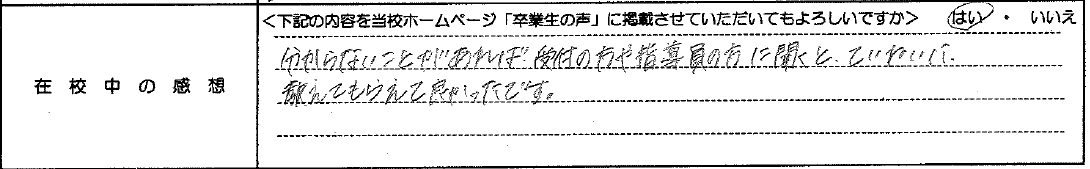 <下記の内容を当校ホームページ「卒業生の声」に掲載させていただいてもよろしいですか> はい ・ いいえ
在校中の感想
分からないことがあれば受付の方や指導員の方に聞くと、ていねいに、
教えてもらえて良かったです。